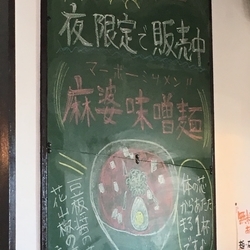 夜限定で販売中
マーボーミソメン!!
麻婆味噌麺
体の芯
からあたた
まる1杯
です
豆板醤の
花山椒の